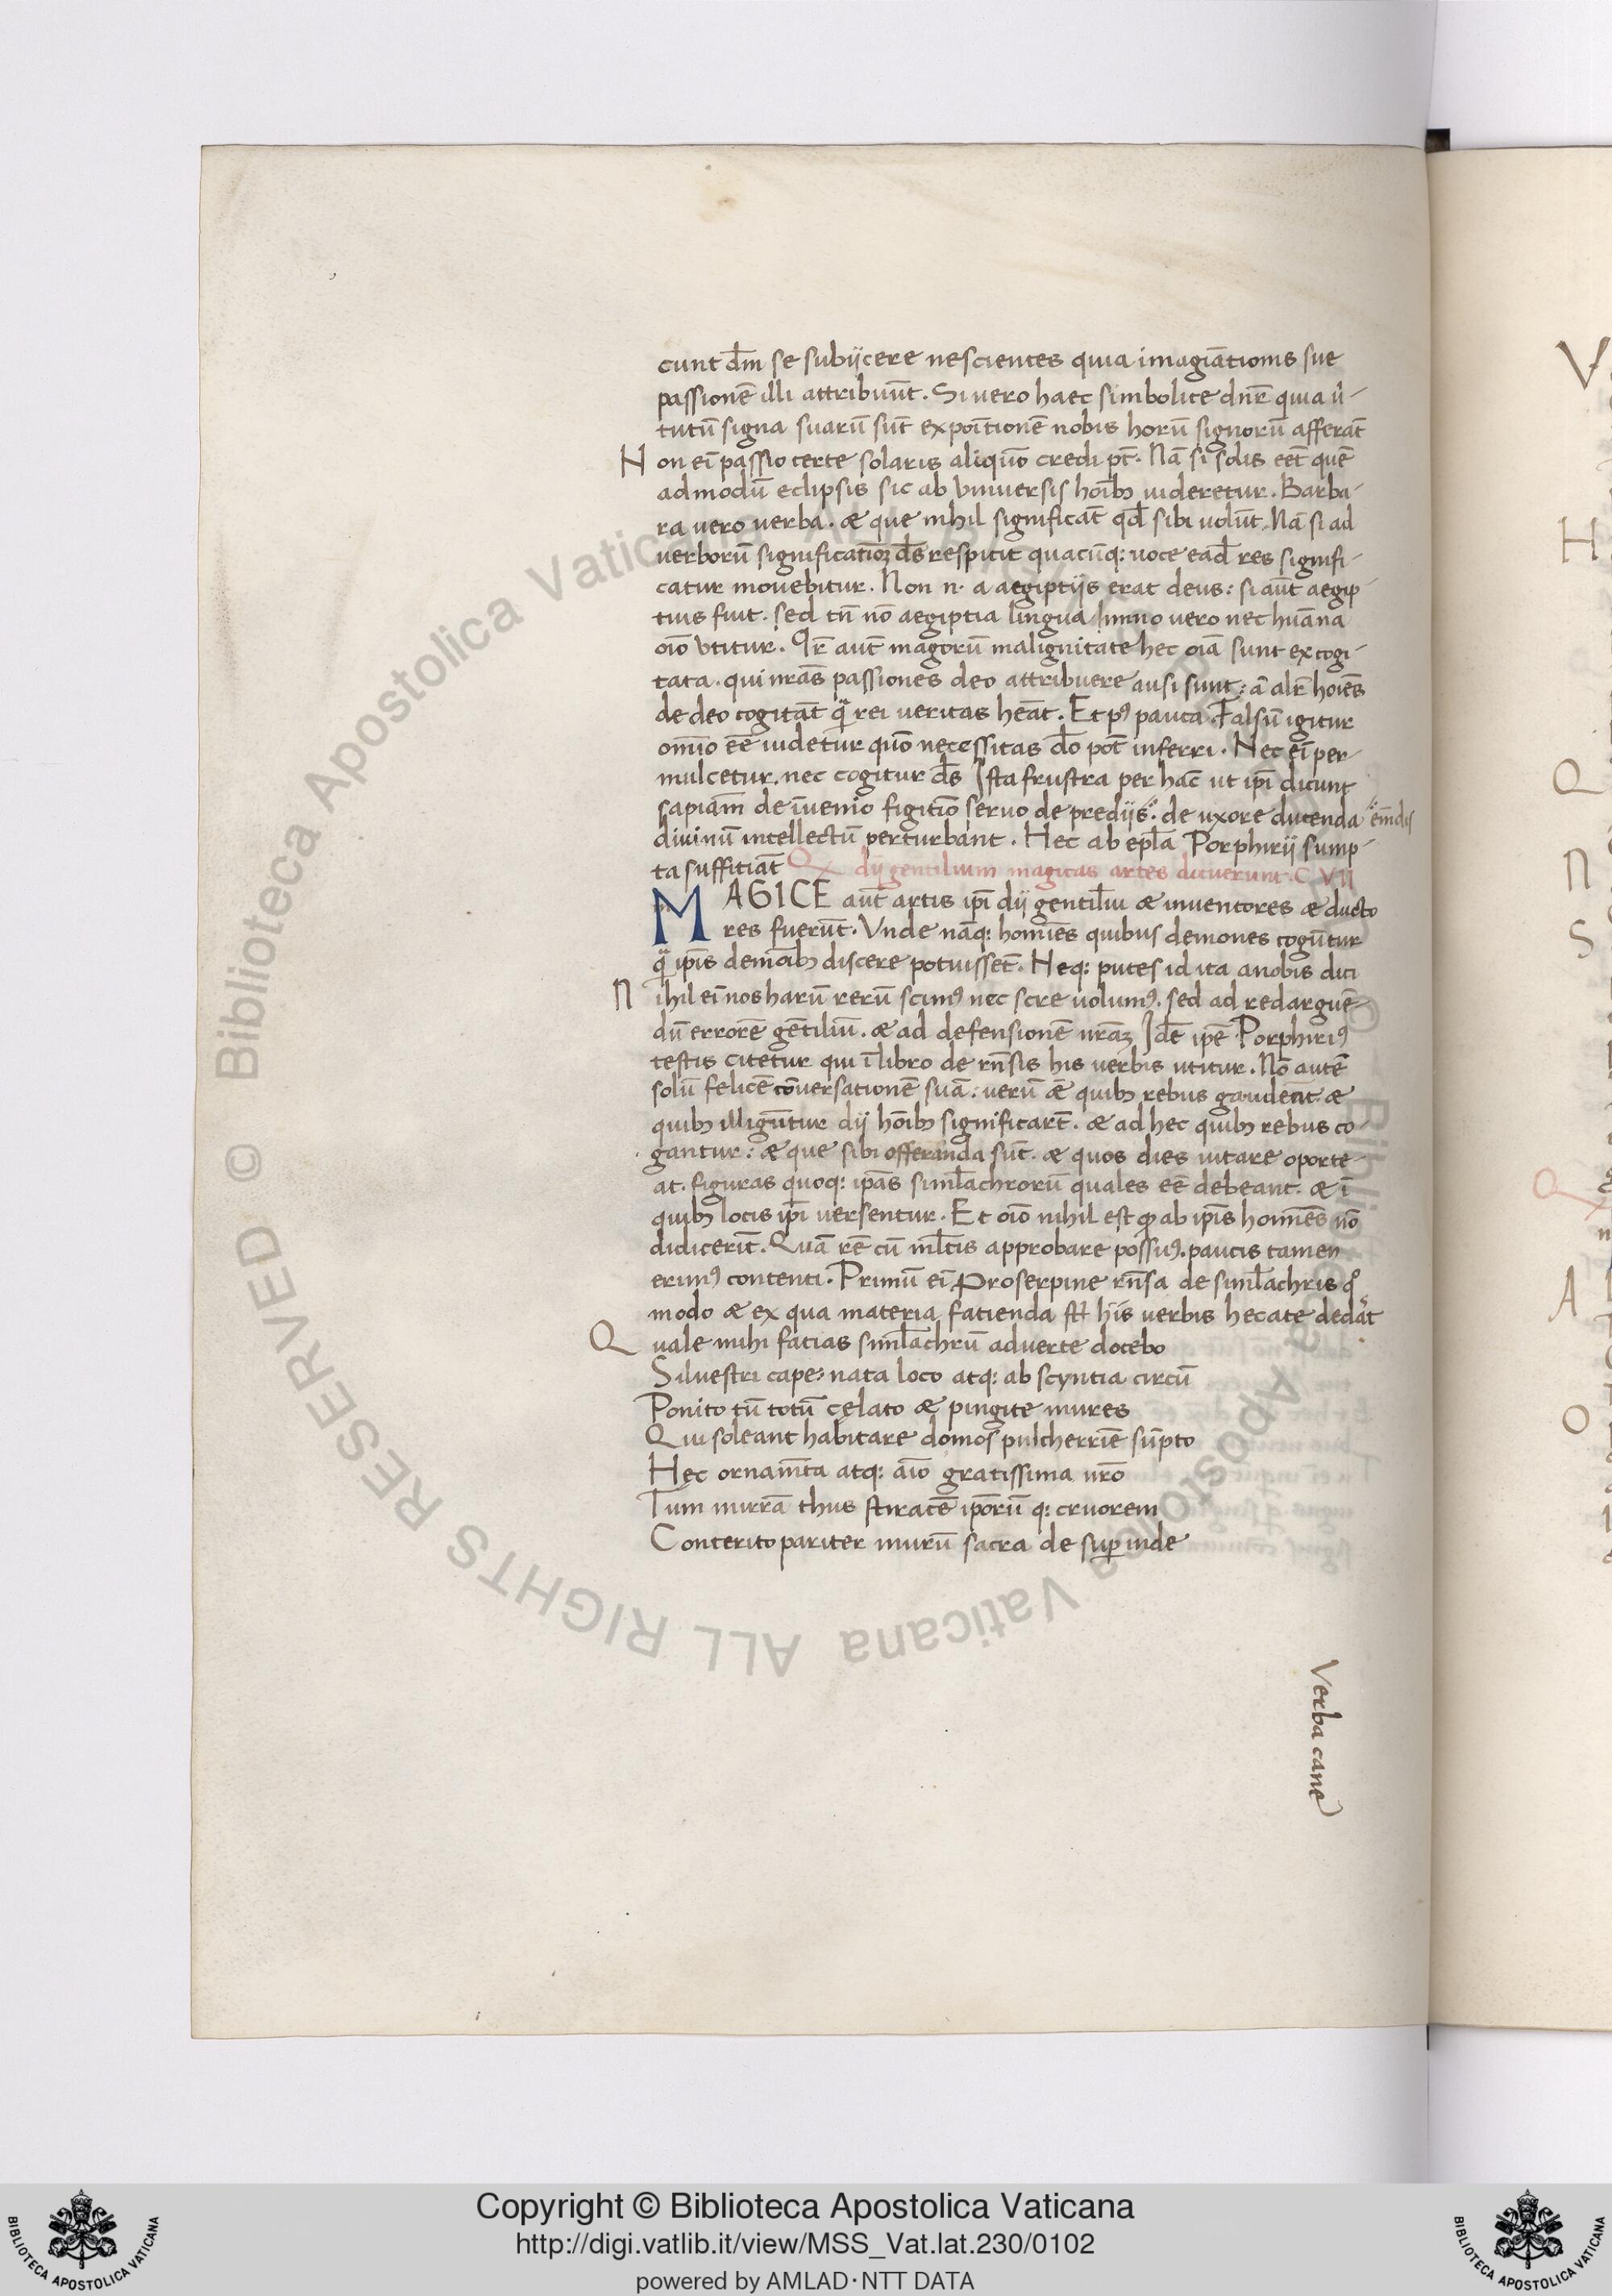 cunt dm̄ se subijcere nescientes quia imagiātionis sue
passionē illi attribuūt. Si uero haec simbolice dn̄r quia uir-
tutū signa suarū sūt expoītionē nobis horū signorū afferāt
Non ei̅ passio certe solaris aliquō credi pt̄. Nā si solis eēt quē
admodū eclipsis sic ab vniuersis hoib; uideretur. Barba-
ra uero uerba. & que nihil significāt qd̄ sibi uolūt. Nā si ad
uerborū significatiōȝ ds̄ respicit quacūq: uoce ead̄ res signifi-
catur mouebitur. Non n. a aegiptijs erat deus: si aūt aegip-
tius fuit. sed tn̄ nō aegiptia lingua immo uero nec huāna
oīo vtitur. Qr̄ aūt magorū malignitate hec oīa sunt excogi-
tata. qui nrās passiones deo attribuere ausi sunt: ā alr̄ hoīes
de deo cogitāt qͣ rei ueritas heāt. Et pꝰ pauca. Falsū igitur
omīo eē uidetur quō necessitas dō pōt inferri. Nec ei̅ per-
mulcetur. nec cogitur ds̄ Ista frustra per hāc ut ip̄i dicunt
sapiām de īuenio figitiō seruo de predijs. de uxore ducenda emēdis
diuinū intellectū perturbant. Hec ab epl̄a Porphirij sump-
ta suffitiāt Q dij gentilium magicas artes dicuerunt. C VII
MAGICE aūt artis ip̄i dij gentiliū & inuentores & ducto
res fuerūt. Vnde nāq: homīes quibus demones cogūtur
qͣ ip̄is demoīb; discere potuissēt. Neq: putes id ita a nobis dici
Nihil ei̅ nos harū rerū scimꝰ nec scire uolumꝰ. sed ad redarguē-
dū errorē gētiliū. & ad defensionē nrāȝ Idē ip̄e Porphiriꝰ
testis citetur qui ī libro de rn̄sis his uerbis utitur. Nō autē
solū felicē cōuersationē suā: uerū & quib; rebus gaudeāt &
quib; illigūtur dij hoīb; significarūt. & ad hec quib; rebus co-
gantur: & que sibi offeranda sūt. & quos dies uitare oporte-
at. figuras quoq: ip̄as siml̄achrorū quales eē debeant. & ī
quib; locis ip̄i uersentur. Et oīo nihil est qd ab ip̄is homīes nō
didicerīt. Quā rē cū ml̄tis approbare possuꝰ. paucis tamen
erimꝰ contenti. Primū ei̅ Proserpine rn̄sa de siml̄achris qͦ
modo & ex qua materia fatienda st̄ hijs uerbis hecate dedāt
Quale mihi facias siml̄achrū aduerte docebo
Siluestri cape nata loco atq: abscyntia circū
Ponito tū totū cęlato & pingite mures
Qui soleant habitare domos pulcherriē sūpto
Hęc ornam̄ta atq: aīo gratissima nrō
Tum mirrā thus stiracē ip̄orū q: cruorem
Conterito pariter murū sacra de super inde
Verba cane